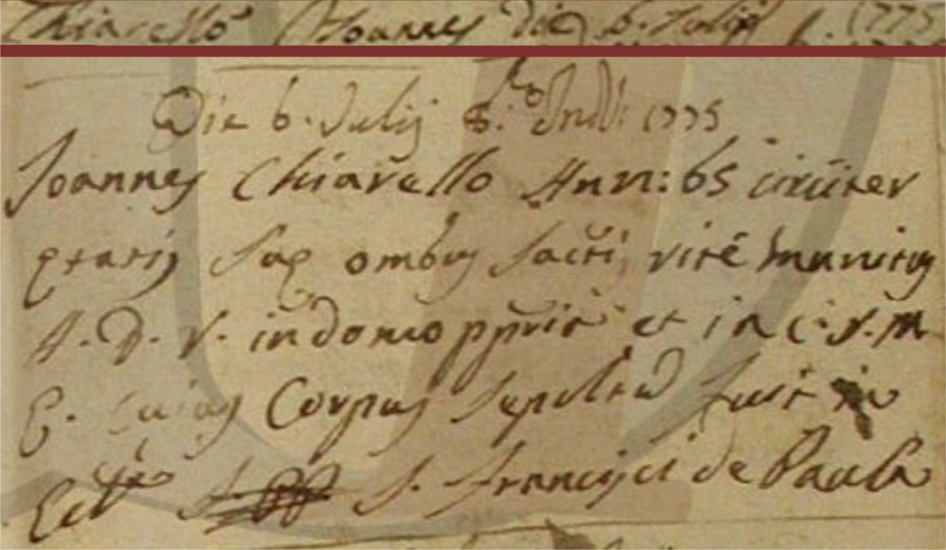 Chiarello Joannes die 6. Julij 1775
Die 6. Julij 8.va Indi: 1775
Joannes Chiarello Ann: 65 circiter
etatis sue ombus sacris rite munitus
A. D. V. in domo ppria et in C. S. M
E. cuius Corpus sepultu fuit in
Ecta S. Francisci de Paula